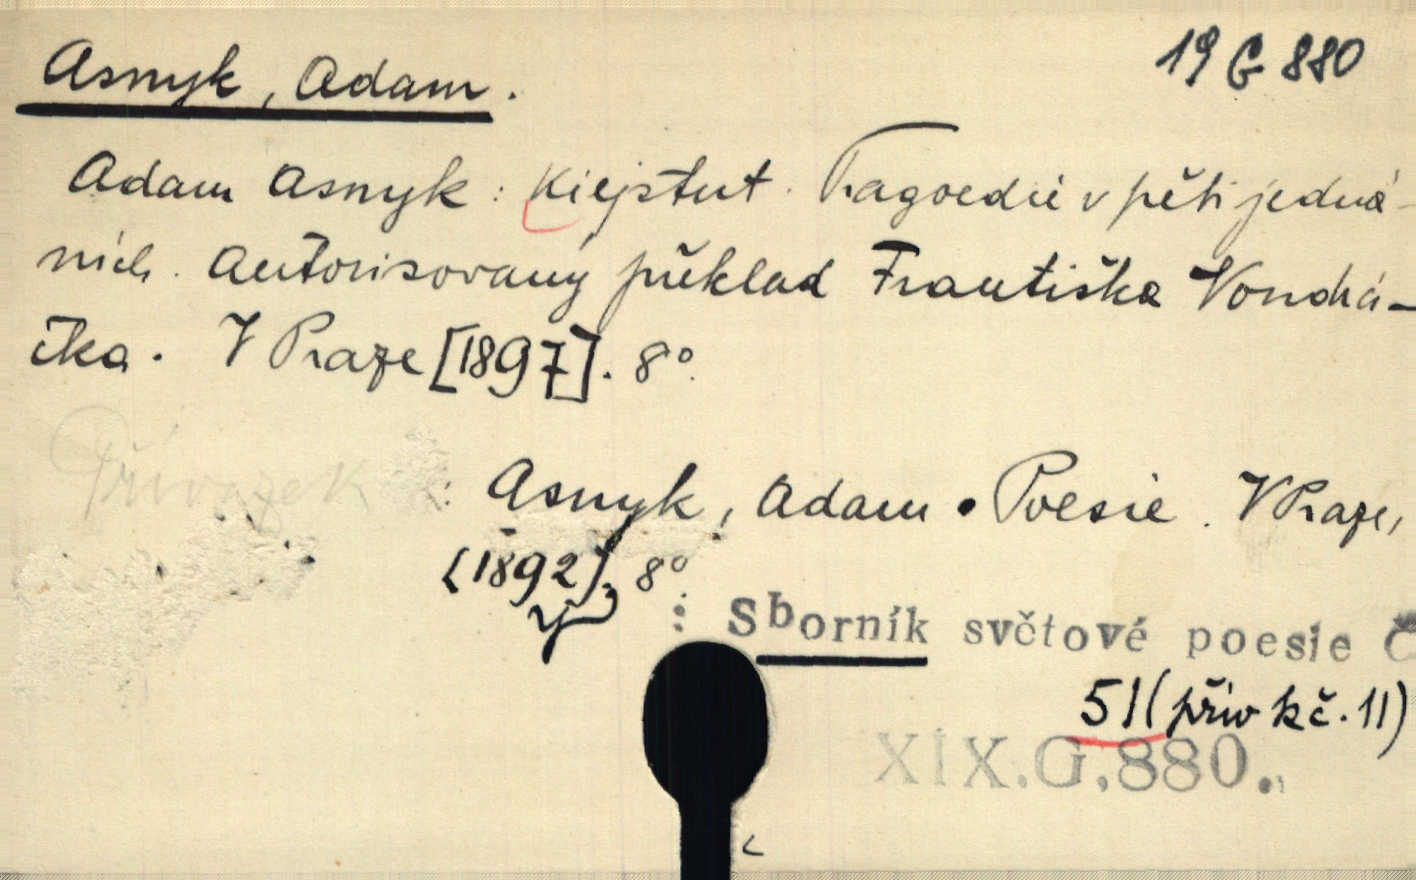 Asnyk, Adam.
19 G 880
Adam Asnyk: Kiejstut. Tragoedie v pěti jedná-
ních. Autorisovaný překlad Františka Vondrá-
čka. V Praze [1897]. 8°.
Přívazek : Asnyk, Adam. Poesie. V Praze,
[1892], 8°
: Sborník světové poesie Č
51 (přív k č. 11)
XIX.G.880.